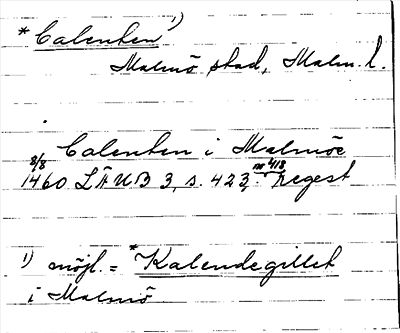 * Calenten 1)
Malmö stad, Malm. l.
Calenten i Malmöe
8/8
1460 LÄUB 3, s. 423, nr 418 regest
1) möjl. = *Kalendegillet
i Malmö